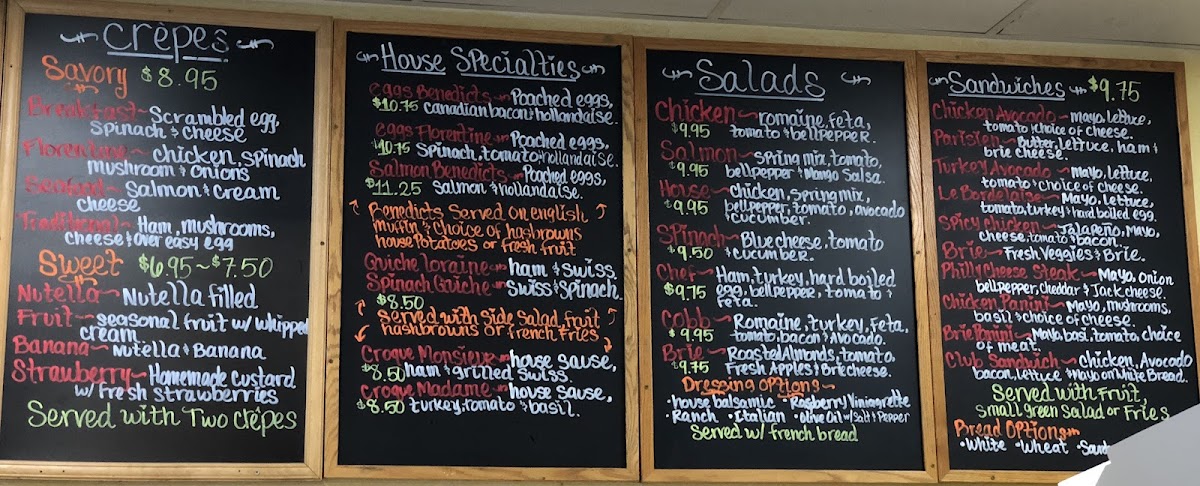 Crèpes
Savory $8.95
Breakfast~ Scrambled egg,
spinach & cheese
Florentine~ chicken, spinach
mushroom & onions
Seafood~ Salmon & cream
cheese
Traditional~ Ham, mushrooms,
cheese & over easy egg
Sweet $6.95~$7.50
Nutella~ Nutella filled
Fruit~ seasonal fruit w/ whipped
cream
Banana~ Nutella & Banana
Strawberry~ Homemade custard
w/ fresh strawberries
Served with Two crêpes
House Specialties
eggs Benedicts~ Poached eggs,
$10.75 canadian bacon & hollandaise.
eggs Florentine~ Poached eggs,
$10.75 Spinach, tomato & hollandaise.
Salmon Benedicts~ Poached eggs,
$11.25 Salmon & hollandaise.
Benedicts Served on english
muffin & choice of hasbrowns
house Potatoes or fresh fruit
Quiche loraine~ ham & swiss
Spinach Quiche~ Swiss & Spinach.
$8.50
Served with side Salad, fruit
hashbrowns or french fries
Croque Monsieur~ house sause,
$8.50 ham & grilled swiss.
Croque Madame~ house sause,
$8.50 turkey, tomato & basil.
Salads
Chicken~ romaine, feta,
$9.95 tomato & bellpepper.
Salmon~ spring mix, tomato,
$9.95 bellpepper & Mango Salsa.
House~ chicken, spring mix,
$9.95 bellpepper, tomato, avocado
& cucumber.
Spinach~ Blue cheese, tomato
$9.50 & cucumber.
Chef~ Ham, turkey, hard boiled
$9.75 egg, bellpepper, tomato &
feta.
Cobb~ Romaine, turkey, feta,
$9.95 tomato, bacon & Avocado.
Brie~ Roasted Almonds, tomato,
$9.75 Fresh Apples & Brie cheese.
Dressing Options~
•house balsamic •Rasberry Viniagrette
•Ranch •Italian •Olive Oil w/ Salt & Pepper
Served w/ french bread
Sandwiches $9.75
Chicken Avocado~ mayo, lettuce,
tomato & choice of cheese.
Parisien~ Butter, lettuce, ham &
brie cheese.
Turkey Avocado~ mayo, lettuce,
tomato & choice of cheese.
Le Bordelaise~ Mayo, lettuce,
tomato, turkey & hard boiled egg.
Spicy Chicken~ Jalapeño, Mayo,
cheese, tomato & bacon.
Brie~ Fresh Veggies & Brie.
Philly Cheese Steak~ Mayo, Onion
bellpepper, cheddar & Jack cheese.
Chicken Panini~ Mayo, mushrooms,
basil & choice of cheese.
Brie Panini~ Mayo, basi, tomato, choice
of meat.
Club Sandwich~ chicken, Avocado
bacon, lettuce & mayo on White Bread.
Served with Fruit,
small green Salad or Fries
Bread Options~
•White •Wheat